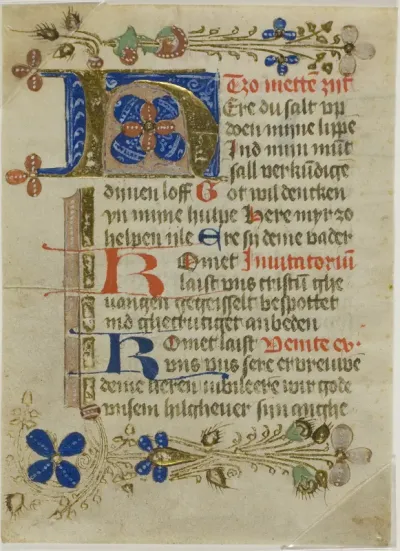 Tzo metten zijt
HEre du salt vp
doen mijne lippe
Ind min mūt
sall verkūdige
dijnen loff Got wil dencken
yn mijne hulpe Here myr zo
helpen ijle Ere sij deme vader
Komet Inuitatoriū
laist vns cristū ghe
uangen gegeiselt bespottet
ind ghecrutiget anbeden
Komet laist Venite ex.
vns vns sere ervreuwe
deme heren iubileere wir gode
vnsem hilgheuer sijn anghe